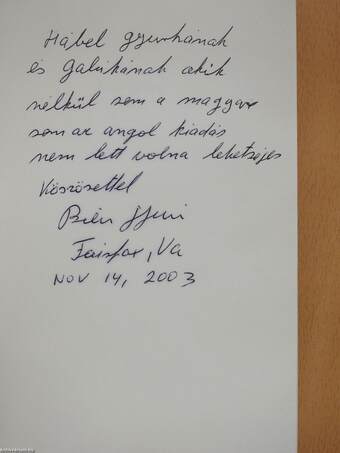 Hábel Gyurkának
és Galukának akik
nélkül sem a magyar
sem az angol kiadás
nem lett volna lehetséges
Köszönettel
Fairfax, Va
NOV 14, 2003